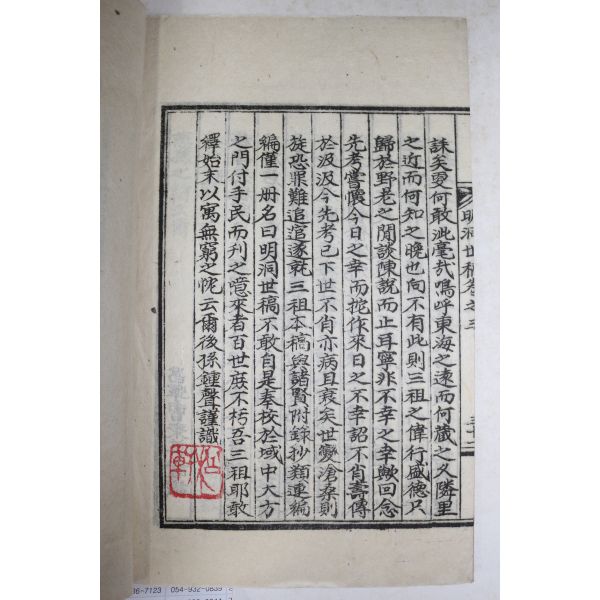 誅矣更何敢泚毫哉嗚呼東海之遠而何藏之久隣里
之近而何知之晚也向不有此則三祖之偉行盛德只
歸於野老之閒談陳說而止耳寧非不幸之幸歟回念
先考嘗懷今日之幸而挓作來日之不幸詔不肖壽傳
於汲汲今先考已下世不肖亦病且衰矣世變滄桑則
旋恐罪難追逭遂就三祖本稿與諸賢附錄抄類連編
編僅一册名曰明洞世稿不敢自是奉校於域中大方
之門付手民而刊之噫來者百世庶不朽吾三祖耶敢
繹始末以寓無窮之忱云爾後孫鍾聲謹識
明洞世稿卷之三
三十二
36-7123
054-932-0839